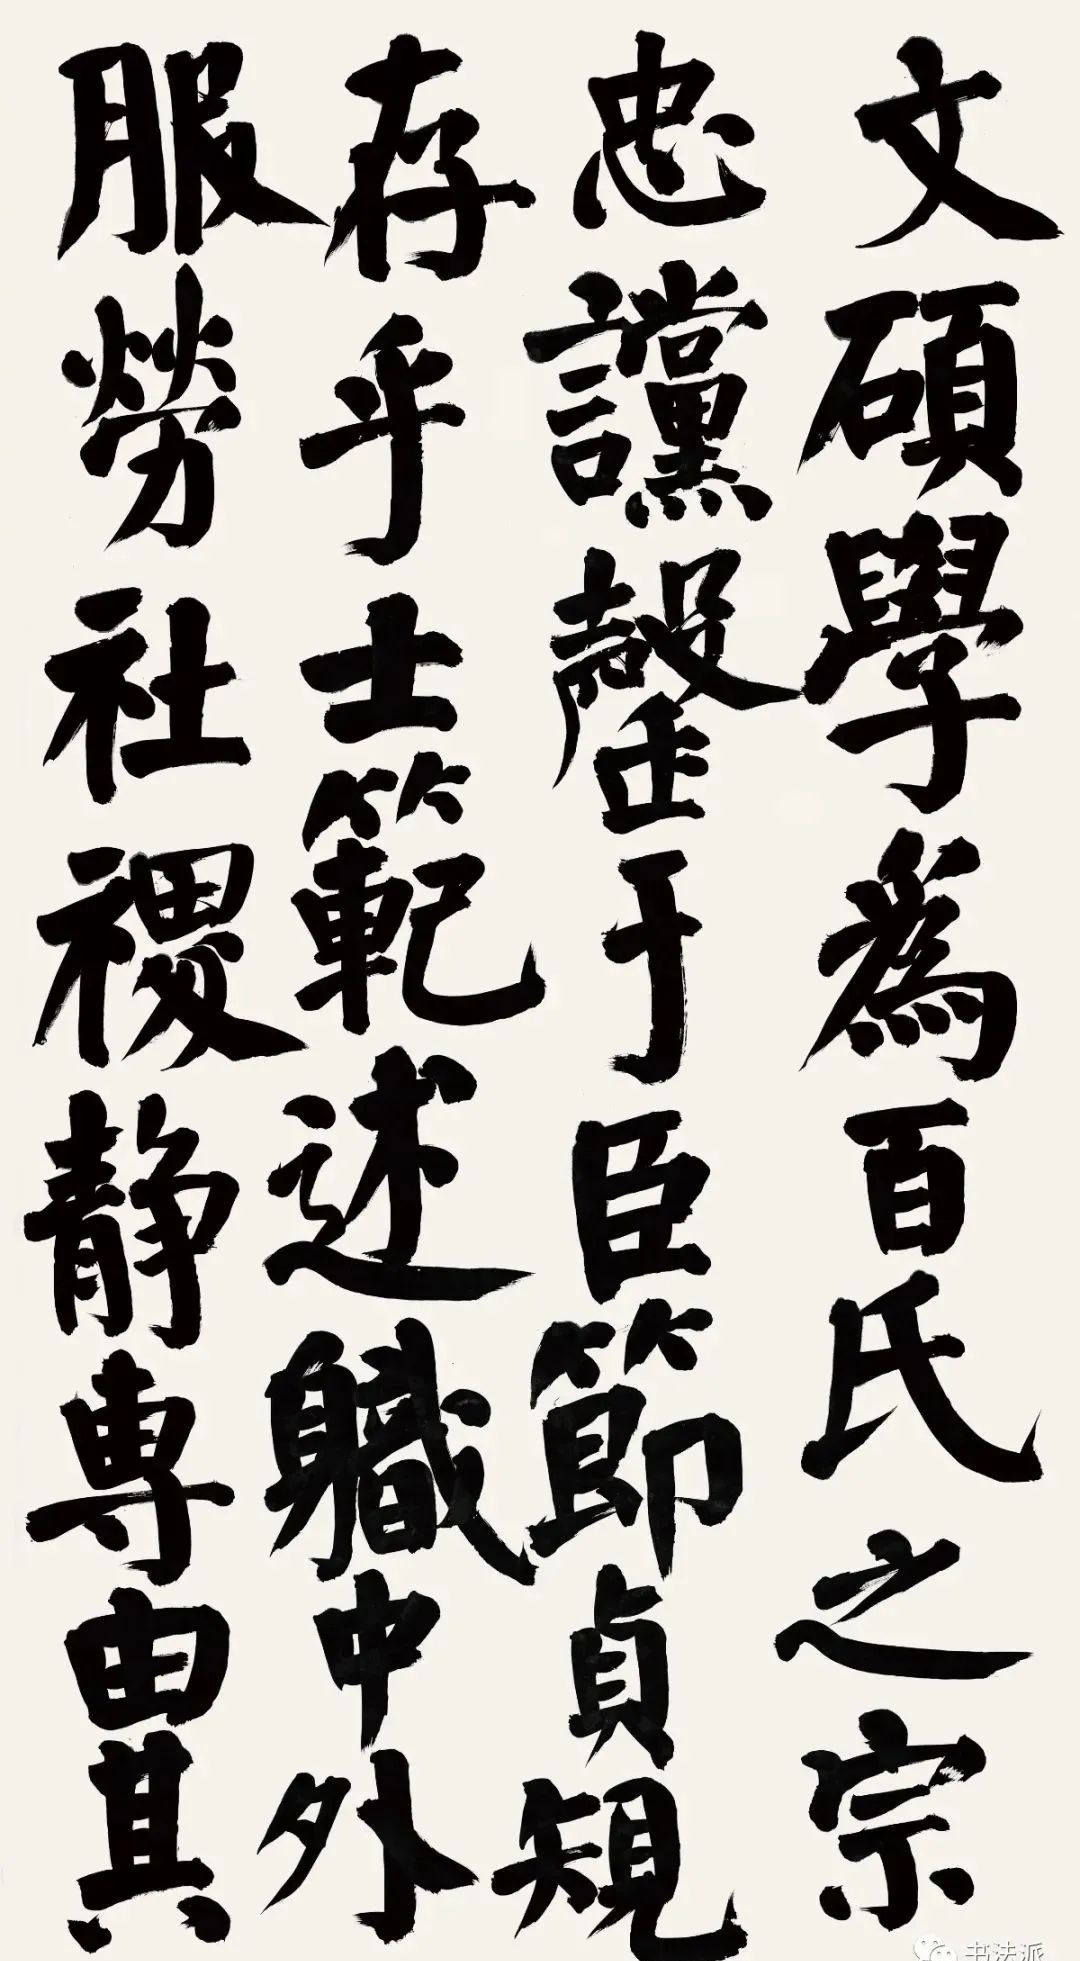 文碩學為百氏之宗
忠讜罄于臣節貞規
存乎士範述職中外
服勞社稷静専由其
书法派